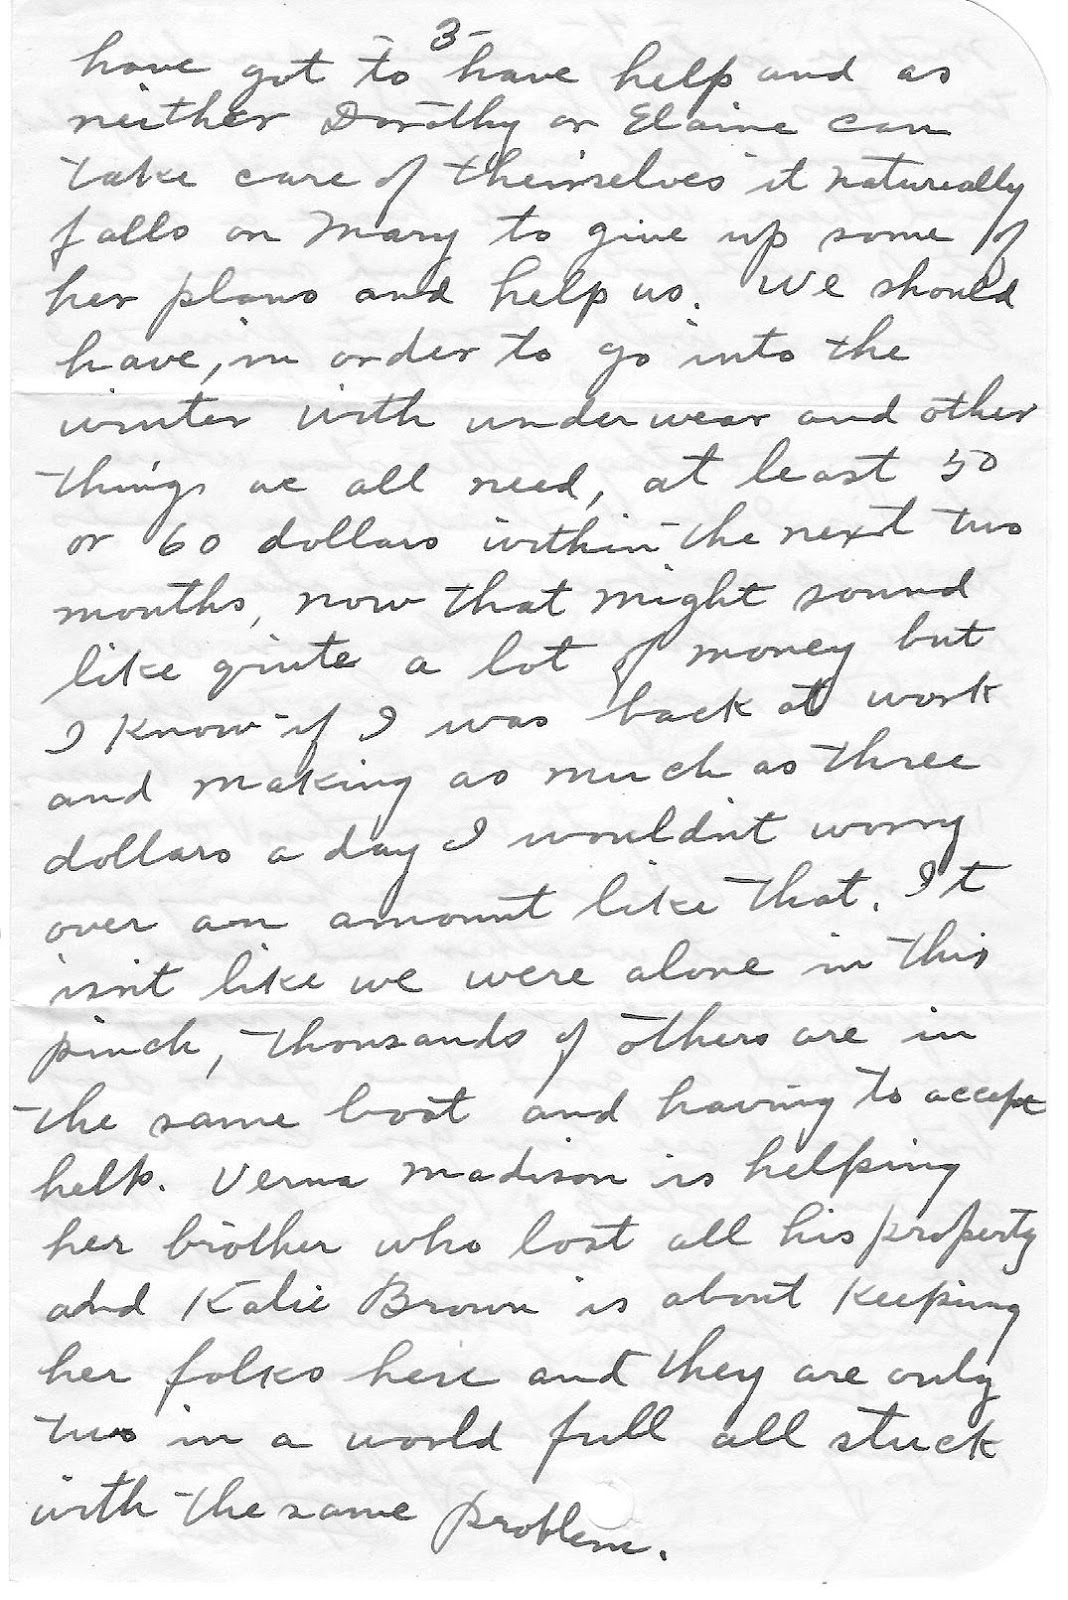 3-
have got to have help and as
neither Dorothy or Elaine can
take care of themselves it natureally
falls on Mary to give up some of
her plans and help us. We should
have, in order to go into the
winter with underwear and other
things we all need, at least 50
or 60 dollars within the next two
months, now that might sound
like quite a lot of money but
I know if I was back at work
and making as much as three
dollars a day I wouldn't worry
over an amount like that. It
isn't like we were alone in this
pinch, thousands of others are in
the same boat and having to accept
help. Verna Madison is helping
her brother who lost all his property
and Katie Brown is about keeping
her folks here and they are only
two in a world full all stuck
with the same problem.